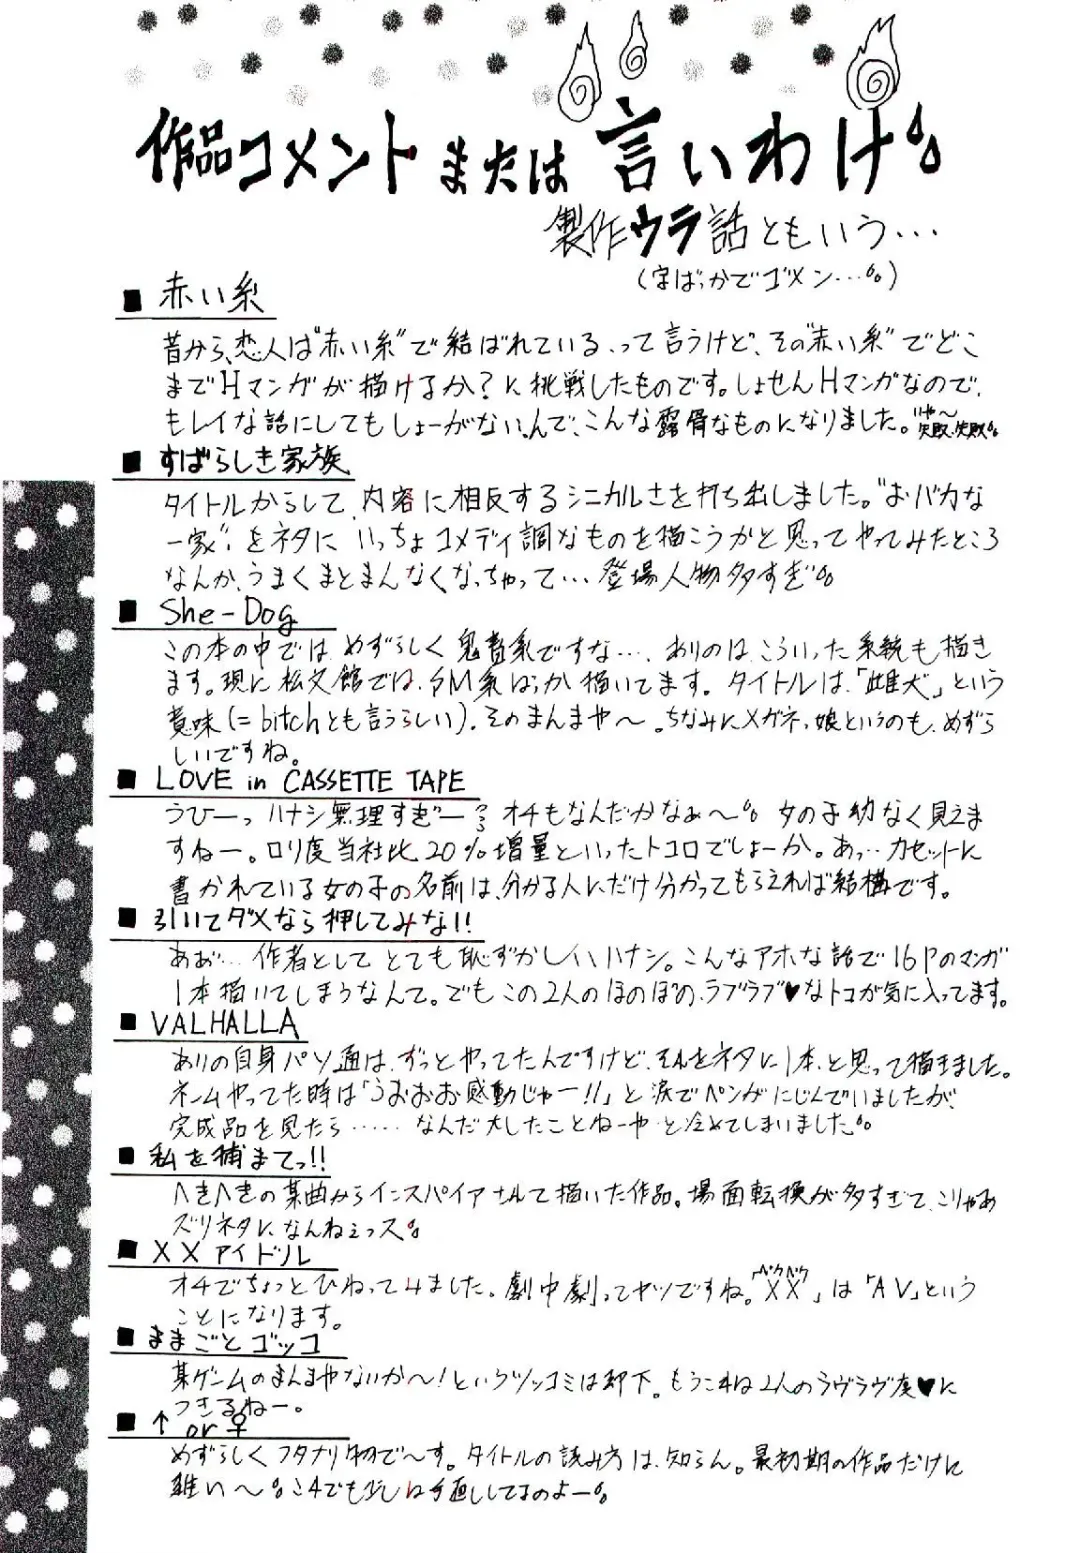 作品コメントまたは言いわけ
製作ウラ話ともいう…
(字ばっかでゴメン…)
■ 赤い糸
昔から、恋人は"赤い糸"で結ばれている、って言うけど、その"赤い糸"でどこ
までHマンガが描けるか？に挑戦したものです。しょせんHマンガなので、
キレイな話にしてもしょーがないんで、こんな露骨なものになりました。いや〜失敗、失敗
■ すばらしき家族
タイトルからして、内容に相反するシニカルさを打ち出しました。"おバカな
一家"をネタに いっちょコメディ調なものを描こうかと思ってやってみたところ
なんか、うまくまとまんなくなっちゃって…登場人物多すぎ
■ She-Dog
この本の中では めずらしく鬼畜系ですな…。ありのは、こういった系統も描き
ます。現に松文館では、SM系ばっか描いてます。タイトルは、「雌犬」という
意味(=bitchとも言うらしい)。そのまんまや〜。ちなみにメガネっ娘というのも、めずら
しいですね。
■ LOVE in CASSETTE TAPE
うひーっ ハナシ無理すぎー オチもなんだかなぁ〜 女の子幼なく見えま
すねー。ロリ度当社比20%増量といったトコロでしょーか。あっ…カセットに
書かれている女の子の名前は、分かる人にだけ分かってもらえれば結構です。
■ 引いてダメなら押してみな!!
あぁ… 作者として とても恥ずかしいハナシ。こんなアホな話で16Pのマンガ
1本描いてしまうなんて。でもこの2人のほのぼの、ラブラブ♥なトコが気に入ってます。
■ VALHALLA
ありの自身パソ通は、ずっとやってたんですけど、それをネタに1本、と思って描きました。
ネームやってた時は「うおおお感動じゃー!!」と涙でペンがにじんでいましたが、
完成品を見たら…… なんだ大したことねーや と冷めてしまいました
■ 私を捕まてっ!!
ヘきヘきの某曲からインスパイアされて描いた作品。場面転換が多すぎて、こりゃあ
ズリネタに なんねぇっス
■ XXアイドル
オチでちょっとひねってみました。劇中劇ってヤツですね。「XX」は「AV」という
ことになります。
■ ままごとゴッコ
某ゲームのまんまやないか〜！というツッコミは却下。もうこれは2人のラヴラヴ度♥に
つきるねー。
■ ↑ or ♀
めずらしくフタナリ物で〜す。タイトルの読み方は、知らん。最初期の作品だけに
難い〜 これでも少しは手直ししてるのよー